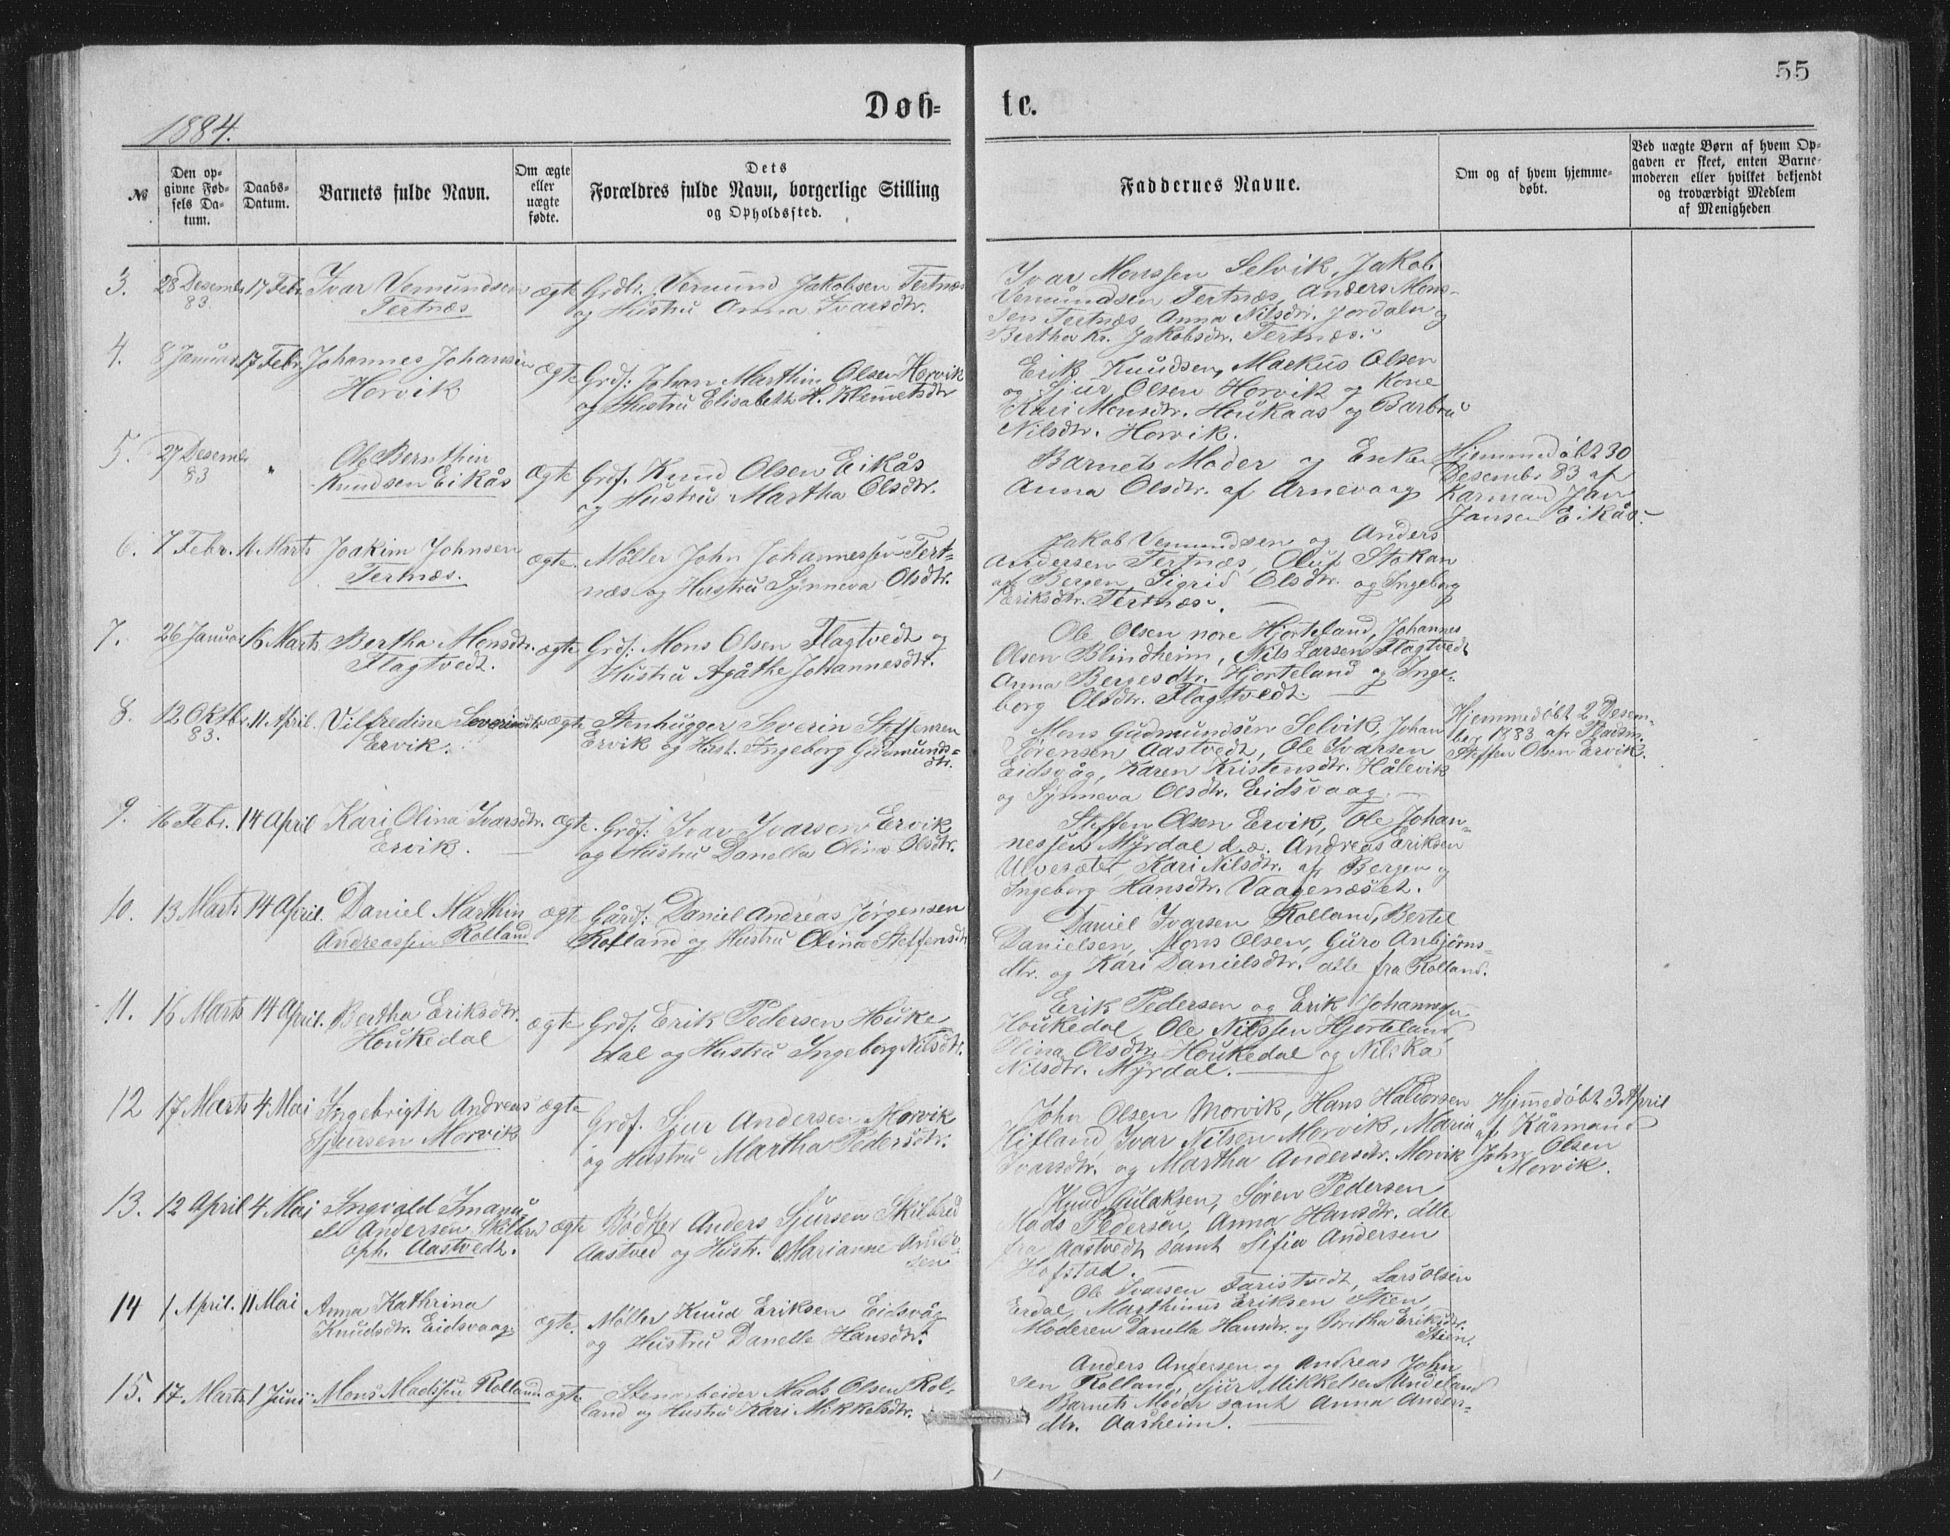 55
Døb-
te.
1884.
№
Den op-
givne Fød-
sels Da-
tum.
Daabs-
Datum.
Barnets fulde Navn.
Om ægte
eller
uægte
fødte.
Dets
Forældres fulde Navn, borgerlige Stilling
og Opholdssted.
Faddernes Navne.
Om og af hvem hjemme-
døbt.
Ved uægte Børn af hvem Op-
gaven er skeet, enten Barne-
moderen eller hvilket bekjendt
og troværdigt Medlem
af Menigheden
3.
28 Desembr
83.
17 Febr.
Ivar Vemundsen
Tertnæs
ægte
Grdbr. Vemund Jakobsen Tertnæs
og Hustru Anna Ivarsdtr.
Ivar Monssen Selvik, Jakob
Vemundsen Tertnæs, Anders Mons-
sen Tertnæs, Anna Nilsdtr. Jordalen og
Bertha Kr. Jakobsdtr. Tertnæs.
4.
8 Januar
17 Febr.
Johannes Johansen
Horvik
ægte
Grdf: Johan Marthin Olsen Horvik
og Hustru Elisabeth H. Klemetsdtr
Erik Knudsen, Markus Olsen
og Sjur Olsen Horvik og Kone
Kari Monsdtr. Houkaas og Barbru
Nilsdtr. Horvik.
5.
27 Desembr
83
"
Ole Bernthin
Knudsen Eikås
ægte
Grdf. Knud Olsen Eikås
og Hustru Martha Olsdtr.
Barnets Moder og Enke
Anna Olsdtr. af Arnevaag
Hjemmedøbt 30
Desembr 83 af
Karmand Jan
Jansen Eikås.
6.
7 Febr.
16 Marts
Joakim Johnsen
Tertnæs.
ægte.
Møller John Johannessen Tert-
næs og Hustru Synneva Olsdtr.
Jakob Vemundsen og Anders
Andersen Tertnæs, Oluf Stokan
af Bergen, Sigrid Olsdtr. og Ingeborg
Eriksdtr. Tertnæs.
7.
26 Januar
16 Marts
Bertha Monsdtr.
Flagtvedt.
ægte
Grdf: Mons Olsen Flagtvedt og
Hustru Agåthe Johannesdtr.
Ole Olsen nore Hjorteland, Johannes
Olsen Blindheim, Nils Larsen Flagtvedt
Anna Bergesdtr. Hjorteland og Inge-
borg Olsdtr. Flagtvedt
8.
12 Oktbr
83.
11 April.
Vilfredine Severinsdtr
Ervik.
ægte
Stenhugger Severin Steffensen
Ervik og Hust. Ingeborg Gudmunds-
dtr.
Mons Gudmundsen Selvik, Johan
Sørensen Aastvedt, Ole Ivarsen
Eidsvåg, Karen Kristensdtr. Hålevik
og Synneva Olsdtr. Eidsvaag.
Hjemmedøbt 2 Desem-
ber 1883 af
Steffen Olsen Ervik.
9.
16 Febr.
14 April
Kari Olina Ivarsdtr.
Ervik.
ægte.
Grdf: Ivar Ivarsen Ervik
og Hustru Danella Olina Olsdtr.
Steffen Olsen Ervik, Ole Johan-
nessen Myrdal d.æ. Andreas Eriksen
Ulvesæter, Kari Nilsdtr. af Bergen og
Ingeborg Hansdtr. Vaagenæset.
10.
13 Marts
14 April.
Daniel Marthin
Andreassen Rolland
ægte
Gårdf: Daniel Andreas Jørgensen
Rolland og Hustru Olina Steffensdtr
Daniel Ivarsen Rolland, Bertel
Danielsen, Mons Olsen, Guro Anbjørns-
dtr. og Kari Danielsdtr. alle fra Rolland.
11.
16 Marts
14 April.
Bertha Eriksdtr.
Houkedal
ægte
Grdf: Erik Pedersen Houke
dal og Hustru Ingeborg Nilsdtr.
Erik Pedersen og Erik Johannessen
Houkedal, Ole Nilssen Hjorteland,
Olina Olsdtr. Houkedal og Nilika
Nilsdtr. Myrdal.
12
17 Marts
4 Mai
Ingebrigth Andreas
Sjursen Morvik
ægte
Grdf. Sjur Andersen Morvik
og Hustru Martha Pedersdtr.
John Olsen Morvik, Hans Haldorsen
Hifland, Ivar Nilsen Morvik, Maria
Ivarsdtr. og Martha Andersdtr. Morvik
Hjemmedøbt 3 April
af Kårmand
John Olsen
Morvik.
13.
12 April
4 Mai
Ingvald Imanu
el Andersen Skilbred
oph. Aastvedt.
ægte
Bødker Anders Sjursen Skilbred
Aastved og Hustr. Marianne Ander
sen
Knud Gulaksen, Søren Pedersen
Mads Pedersen, Anna Hansdtr. alle
fra Aastvedt samt Sifia Andersen
Hofstad.
14
1 April.
11 Mai
Anna Kathrina
Knudsdtr. Eidsvaag
ægte.
Møller Knud Eriksen Eidsvåg
og Hustru Danella Hansdtr.
Ole Ivarsen Taristvedt, Lars Olsen
Erdal, Marthinus Eriksen Stien,
Moderen Danella Hansdtr. og Beritha Eriksdtr.
Stien.
15.
17 Marts
1 Juni
Mons Madssen Rolland
ægte
Stenarbeider Mads Olsen Rol-
land og Hustru Kari Mikkelsdtr.
Anders Andersen og Andreas John
sen Rolland, Sjur Mikkelsen Undeland
Barnets Moder samt Anna Anders-
dtr. Aasheim.